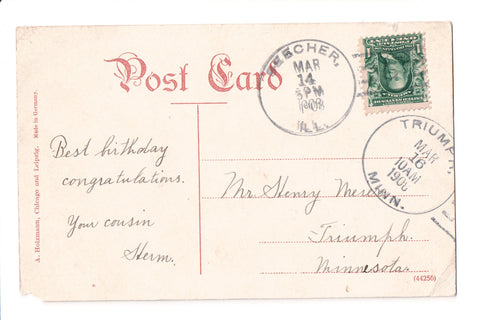 Post Card
BEECHER,
MAR
14
PM
1908
ILL.
TRIUMPH,
MAR
16
10AM
1908
MINN.
Best birthday
congratulations.
Your cousin
Herm.
Mr. Henry
Triumph.
Minnesota.
A. Holzmann, Chicago and Leipzig. Made in Germany.
(44256)